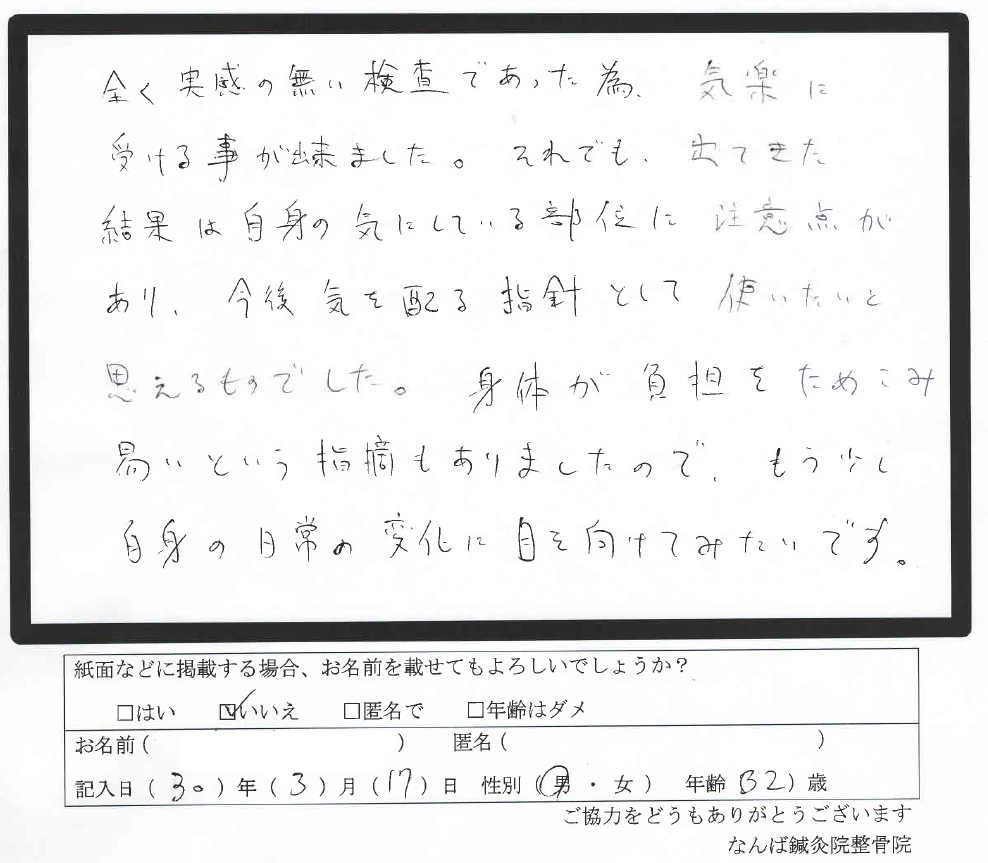 全く実感の無い検査であった為、気楽に
受ける事が出来ました。それでも、出てきた
結果は自身の気にしている部位に注意点が
あり、今後気を配る指針として使いたいと
思えるものでした。身体が負担をためこみ
易いという指摘もありましたので、もう少し
自身の日常の変化に目を向けてみたいです。
紙面などに掲載する場合、お名前を載せてもよろしいでしょうか？
□はい ☑いいえ □匿名で □年齢はダメ
お名前（ ） 匿名（ ）
記入日（30）年（3）月（17）日 性別（男・女） 年齢（32）歳
ご協力をどうもありがとうございます
なんば鍼灸院整骨院